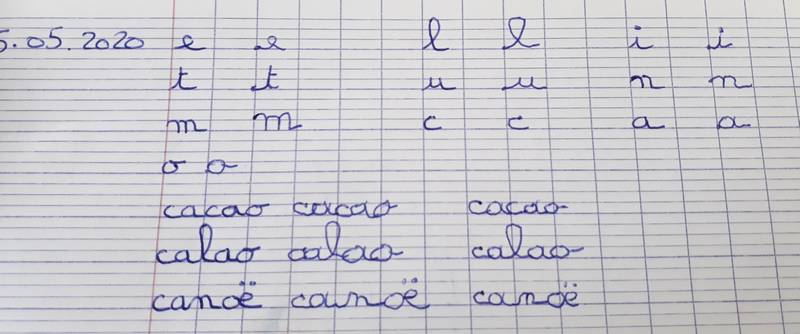 5.05.2020 e e l l i i
t t u u n n
m m c c a a
o o
cacao cacao cacao
calao calao calao
canoë counoë canoë